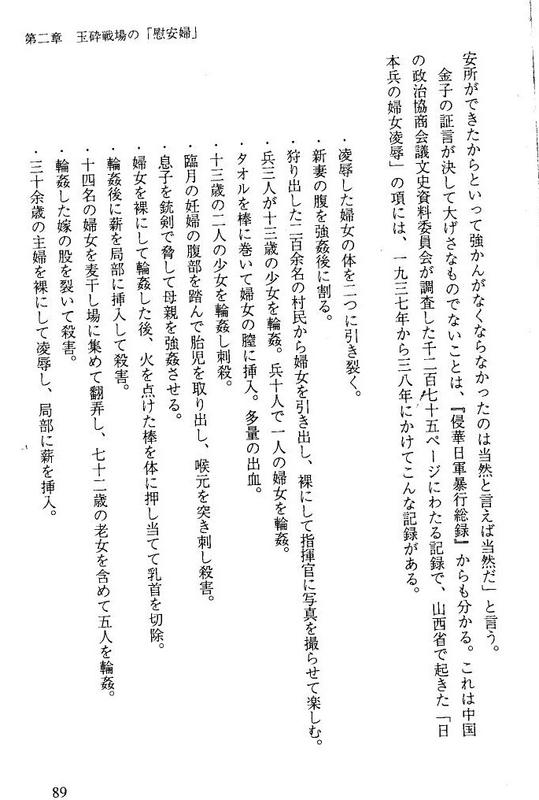 第二章　玉砕戦場の「慰安婦」
安所ができたからといって強かんがなくならなかったのは当然と言えば当然だ」と言う。
金子の証言が決して大げさなものでないことは、『侵華日軍暴行総録』からも分かる。これは中国
の政治協商会議文史資料委員会が調査した千二百七十五ページにわたる記録で、山西省で起きた「日
本兵の婦女凌辱」の項には、一九三七年から三八年にかけてこんな記録がある。
・凌辱した婦女の体を二つに引き裂く。
・新妻の腹を強姦後に割る。
・狩り出した二百余名の村民から婦女を引き出し、裸にして指揮官に写真を撮らせて楽しむ。
・兵三人が十三歳の少女を輪姦。兵十人で一人の婦女を輪姦。
・タオルを棒に巻いて婦女の膣に挿入。多量の出血。
・十三歳の二人の少女を輪姦し刺殺。
・臨月の妊婦の腹部を踏んで胎児を取り出し、喉元を突き刺し殺害。
・息子を銃剣で脅して母親を強姦させる。
・婦女を裸にして輪姦した後、火を点けた棒を体に押し当てて乳首を切除。
・輪姦後に薪を局部に挿入して殺害。
・十四名の婦女を麦干し場に集めて翻弄し、七十二歳の老女を含めて五人を輪姦。
・輪姦した嫁の股を裂いて殺害。
・三十余歳の主婦を裸にして凌辱し、局部に薪を挿入。
89